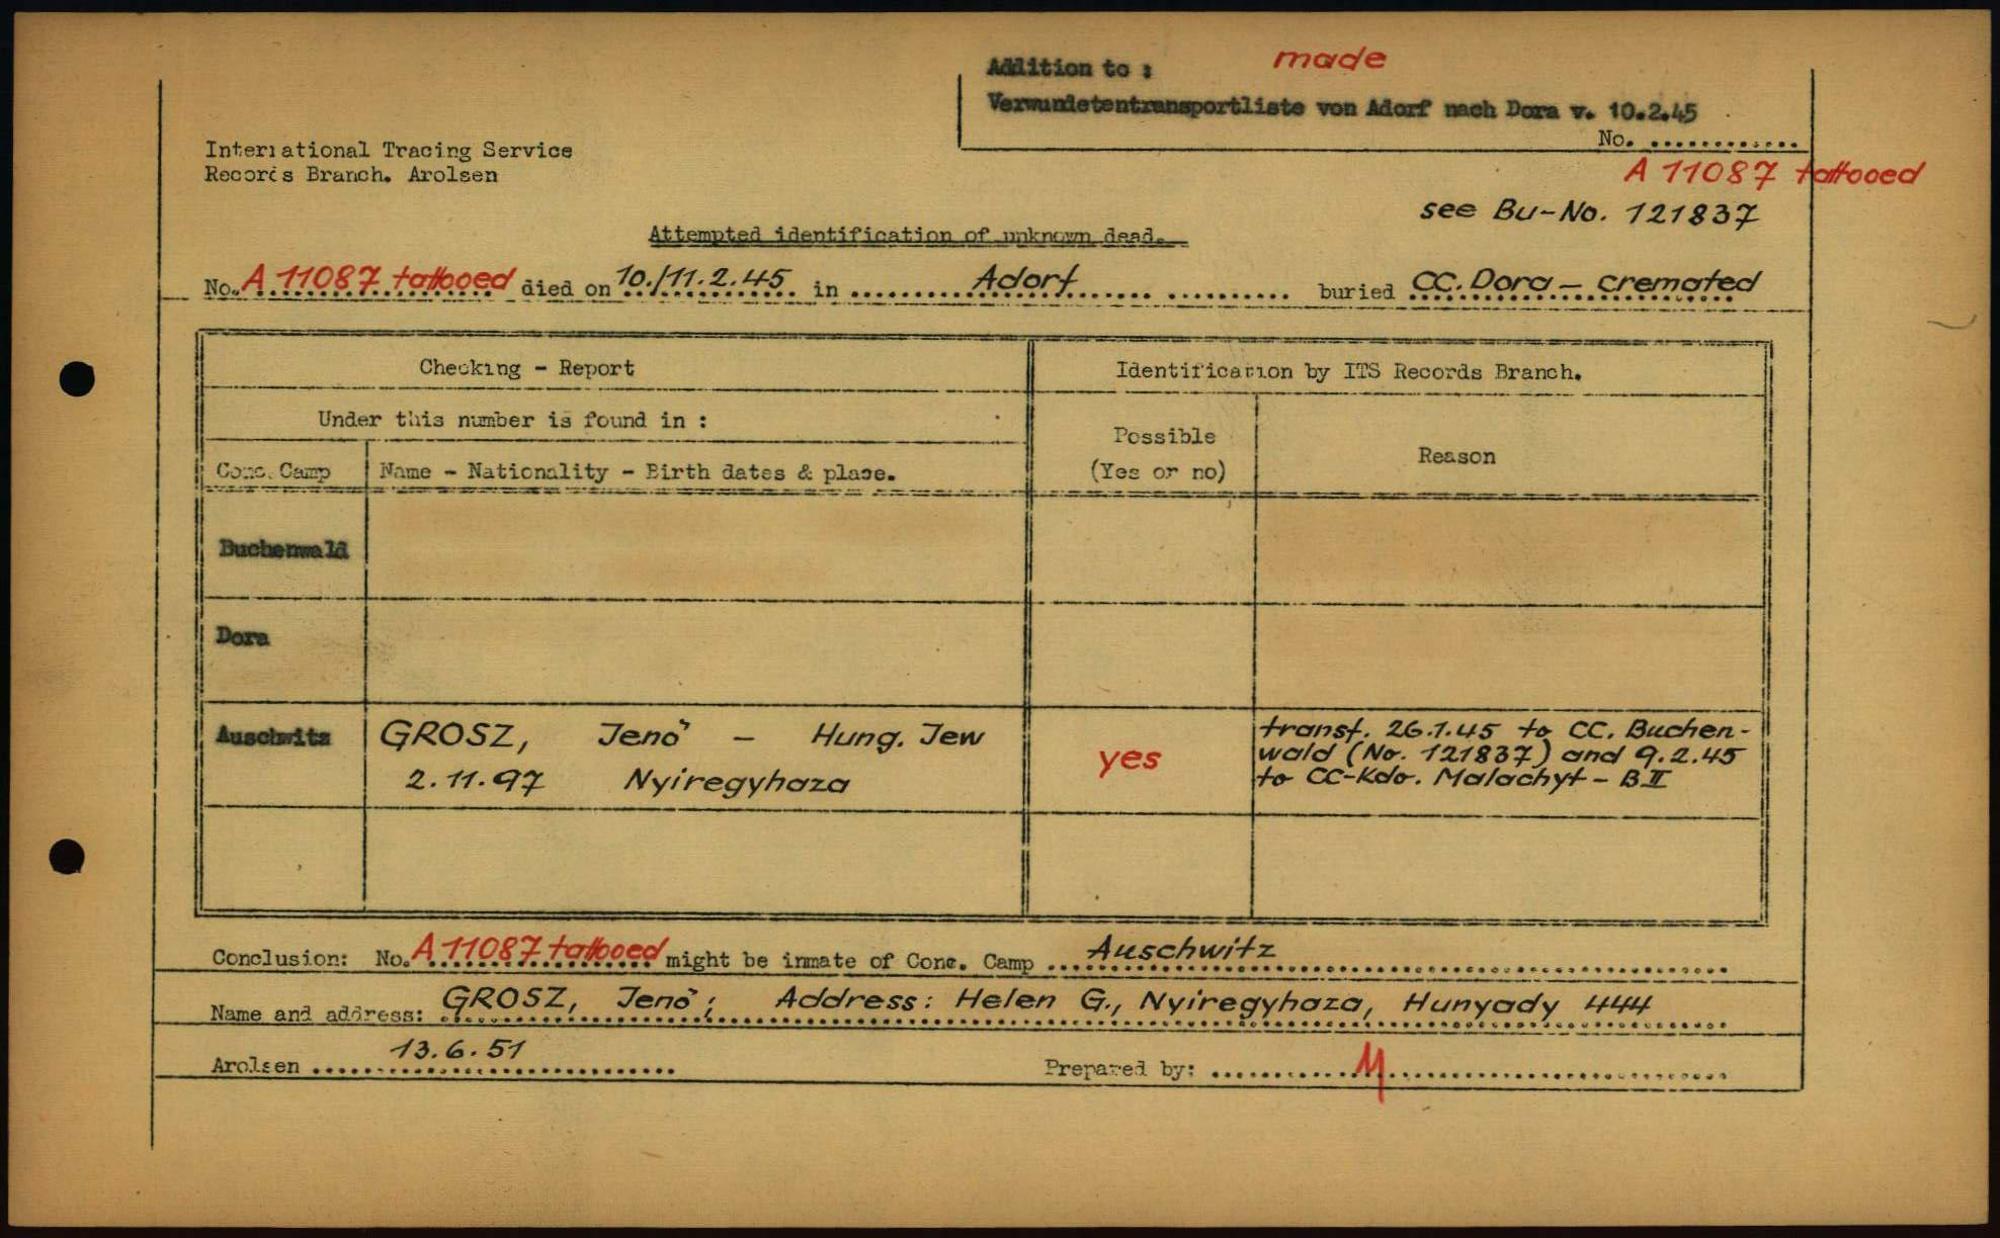 Addition to : made
Verwundetentransportliste von Adorf nach Dora v. 10.2.45
No. ............
International Tracing Service
Records Branch. Arolsen
A 11087 tattooed
see Bu-No. 121837
Attempted identification of unknown dead.
No. A 11087 tattooed died on 10./11.2.45 in Adorf buried CC. Dora - cremated
Checking - Report
Identification by ITS Records Branch.
Under this number is found in :
Possible
(Yes or no)
Reason
Conc. Camp
Name - Nationality - Birth dates & place.
Buchenwald
Dora
Auschwitz
GROSZ, Jenő - Hung. Jew
2.11.97 Nyiregyhaza
yes
transf. 26.1.45 to CC. Buchen-
wald (No. 121837) and 9.2.45
to CC-Kdo. Malachyt - B II
Conclusion: No. A 11087 tattooed might be inmate of Conc. Camp Auschwitz
Name and address: GROSZ, Jenő; Address: Helen G., Nyiregyhaza, Hunyady 444
Arolsen 13.6.51
Prepared by: